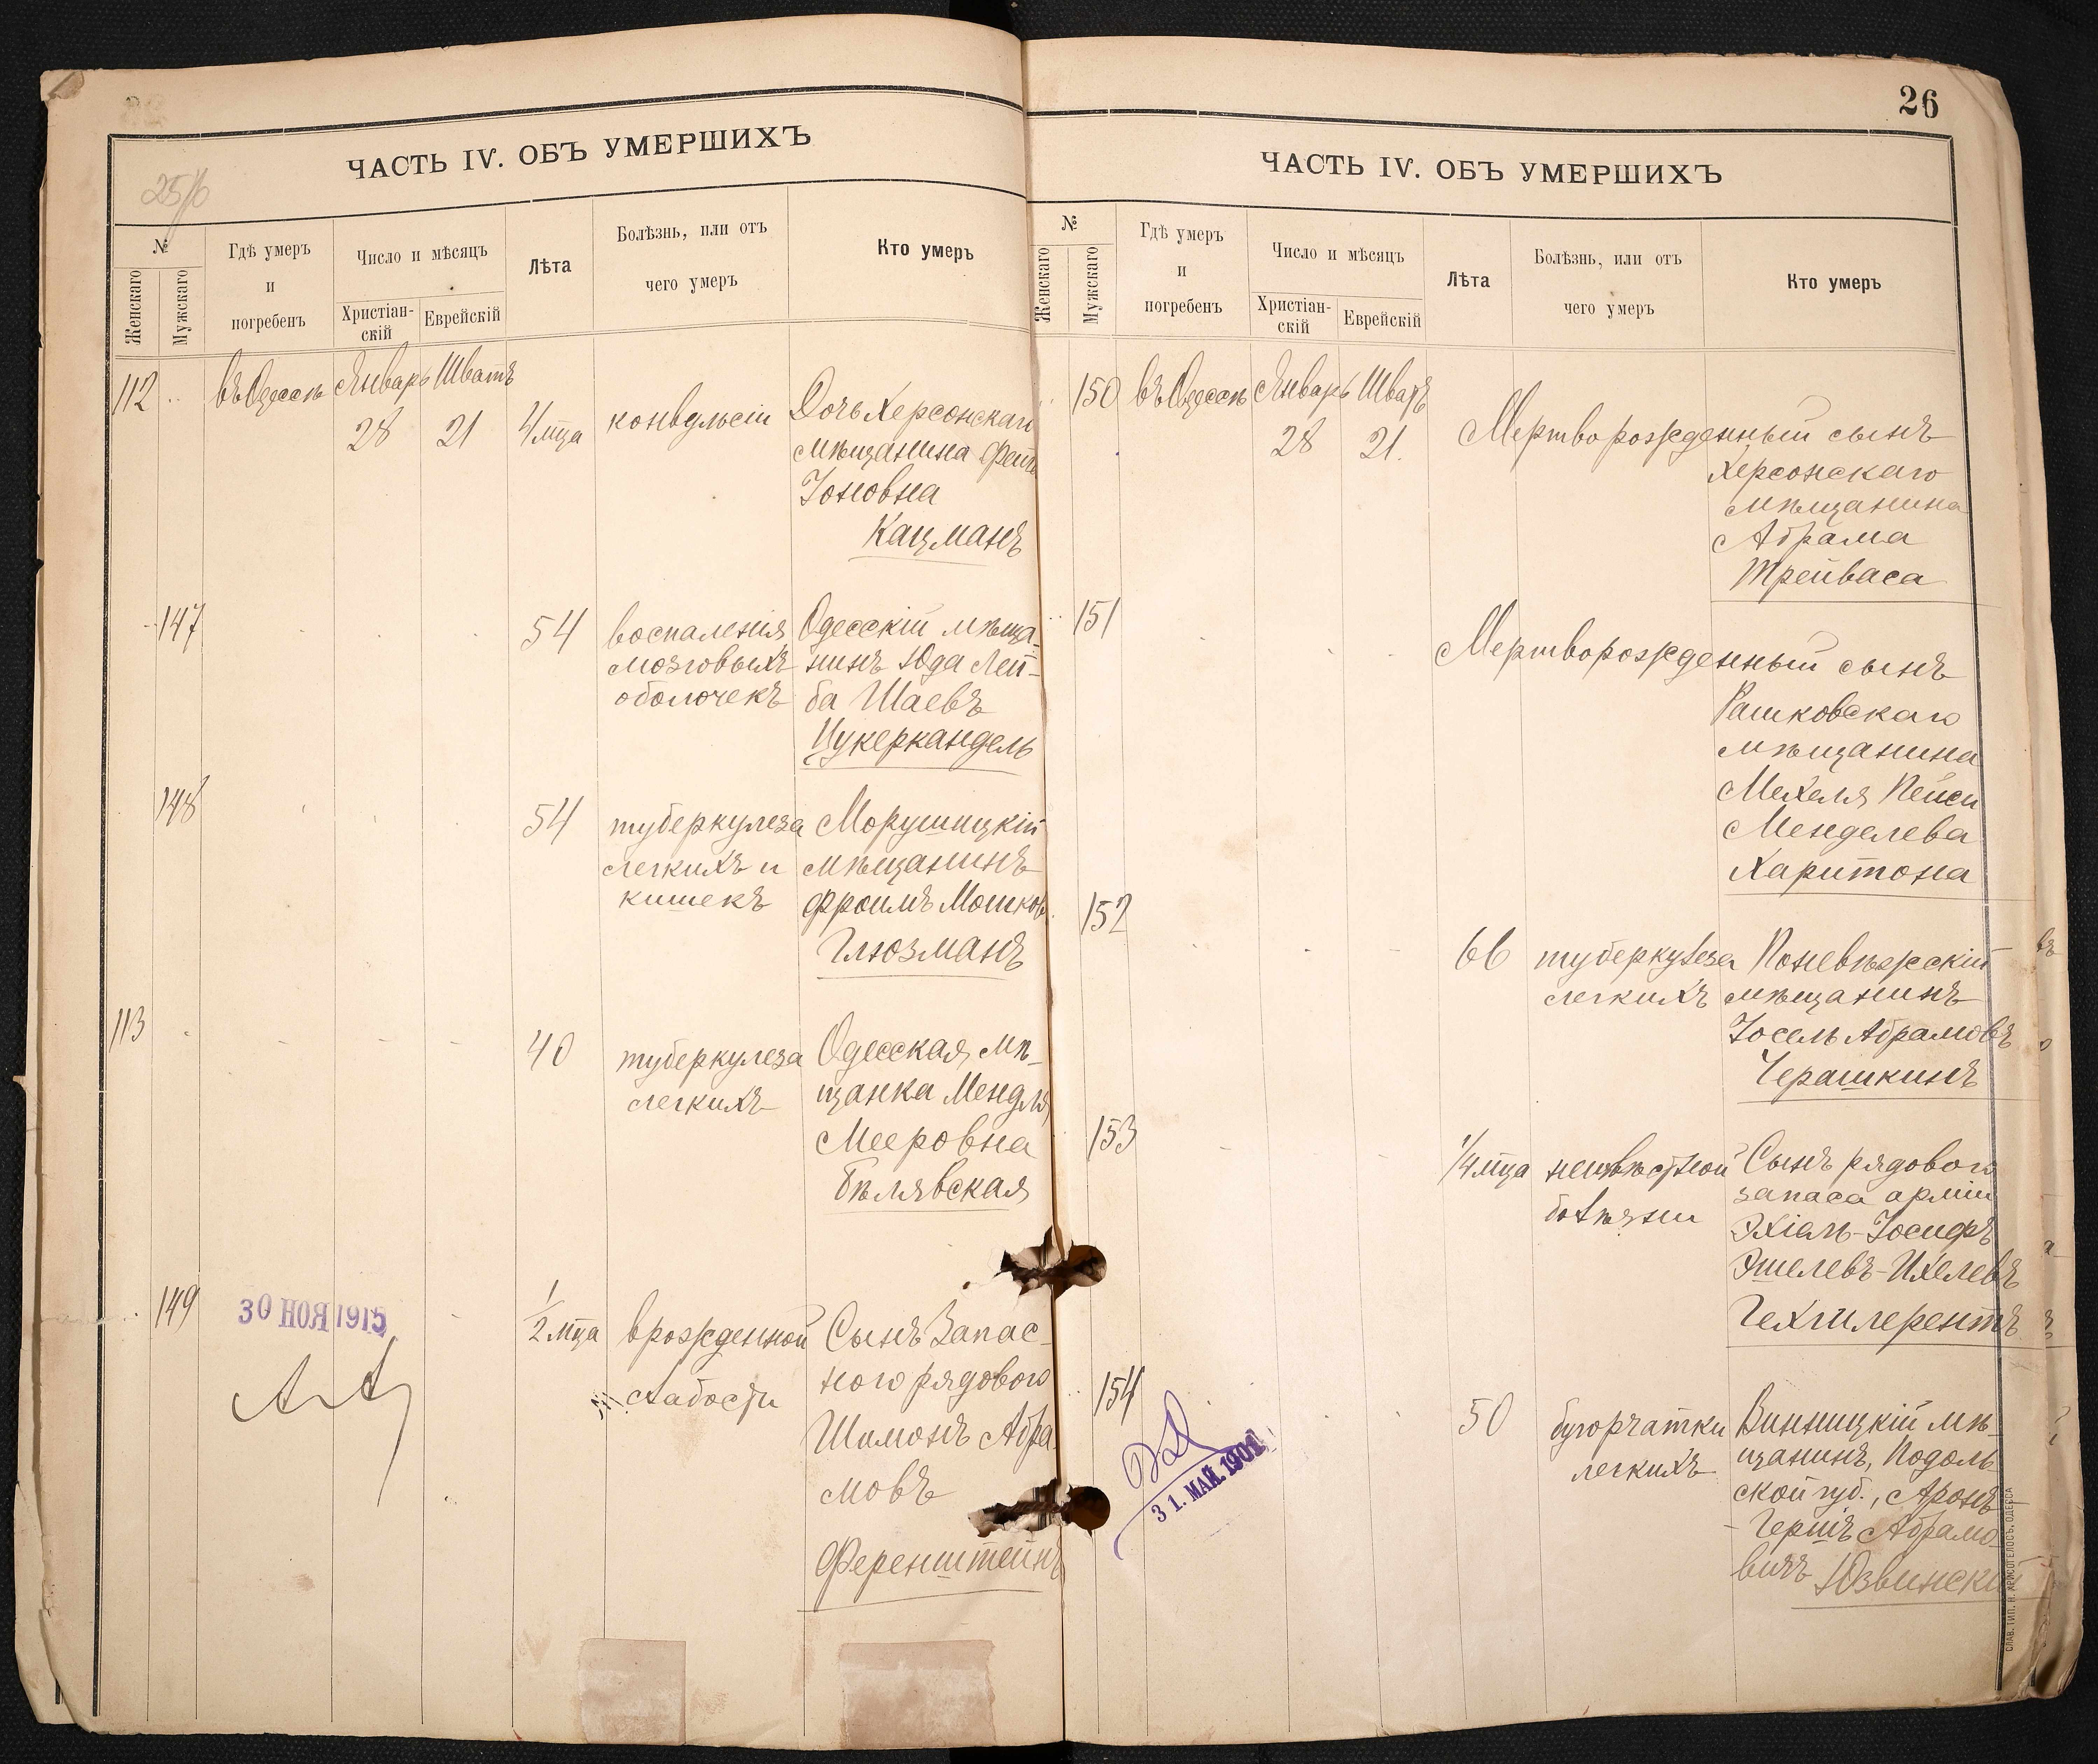 ЧАСТЬ IV. ОБЪ УМЕРШИХЪ
№
Женскаго
Мужскаго
Гдѣ умеръ
и
погребенъ
Число и мѣсяцъ
Христіан-
скій
Еврейскій
Лѣта
Болѣзнь, или отъ
чего умеръ
Кто умеръ
112
въ Одессѣ
Январь
28
Шватъ
21
4 мца
конвульсіи
Дочь Херсонскаго
мѣщанина
Іоновна
Кацманъ
147
54
воспаленія
мозговыхъ
оболочекъ
Одесскій мѣща-
нинъ Юда Лей-
ба Шаевъ
Цукеркандель
148
54
туберкулеза
легкихъ и
кишекъ
мѣщанинъ
Фроимъ Мошков
Глюзманъ
113
40
туберкулеза
легкихъ
Одесская мѣ-
щанка Мендля
Мееровна
Бѣлявская
149
30 НОЯ 1915
1/2 мца
врожденной
слабости
Сынъ Запас-
ного рядового
Шимонъ Абра-
мовъ
Ференштейнъ
26
ЧАСТЬ IV. ОБЪ УМЕРШИХЪ
№
Женскаго
Мужскаго
Гдѣ умеръ
и
погребенъ
Число и мѣсяцъ
Христіан-
скій
Еврейскій
Лѣта
Болѣзнь, или отъ
чего умеръ
Кто умеръ
150
въ Одессѣ
Январь
28
Шватъ
21.
Мертворожденный сынъ
Херсонскаго
мѣщанина
Абрама
Трейваса
151
Мертворожденный сынъ
Рашковскаго
мѣщанина
Мехеля Пейси
Менделева
Харитона
152
66
туберкулеза
легкихъ
Поневѣжскій
мѣщанинъ
Іосель Абрамовъ
Черашкинъ
153
1/4 мца
неизвѣстной
болѣзни
Сынъ рядового
запаса арміи
Эхіель-Іосифъ
Эшелевъ-Ихелевъ
154
31. МАЙ. 1901
50
бугорчатки
легкихъ
Винницкій мѣ-
щанинъ, Подоль-
ской губ., Аронъ-
-Гершъ Абрамо-
вичъ Юзвинскій
СЛАВ. ТИП. Н. ХРИСОГЕЛОСЪ. ОДЕССА